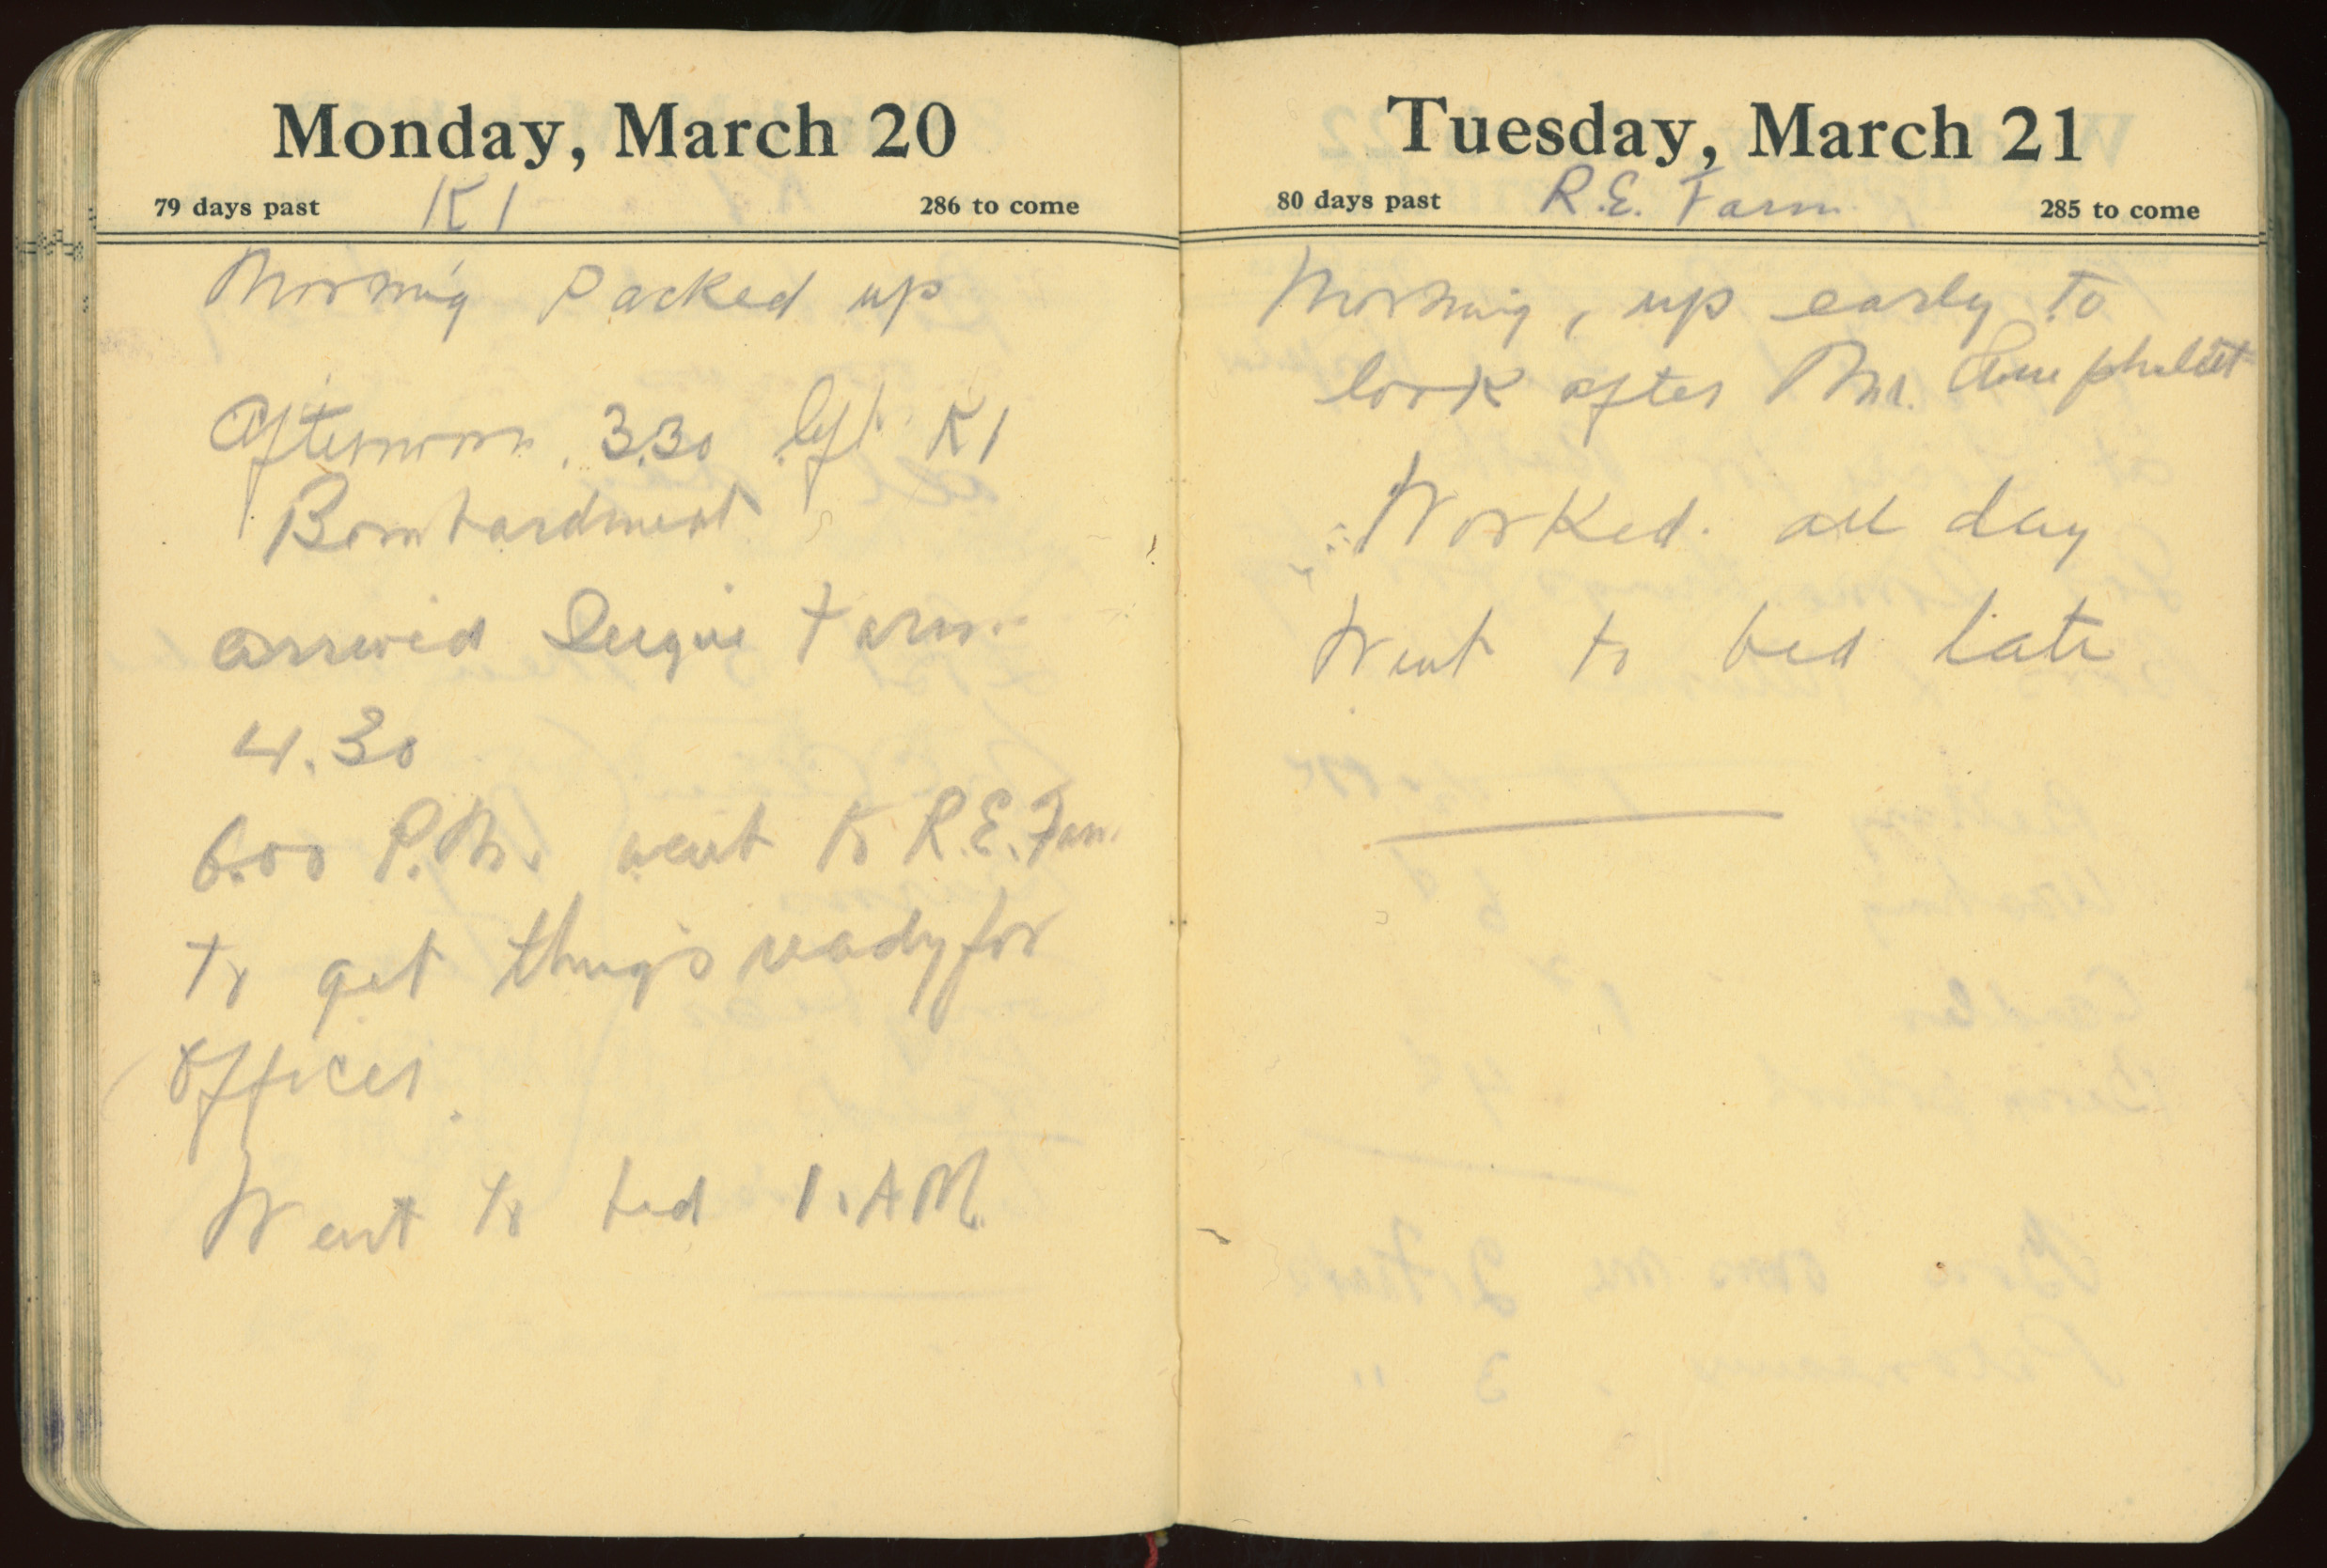 Monday, March 20
79 days past K1 286 to come
Morning Packed up
Afternoon. 3.30 left K1
Bombardment
arrived Farm.
4.30
6.00 P.M. went to R.E. Farm
to get things ready for
Officer.
Went to bed 1. AM.
Tuesday, March 21
80 days past R.E. Farm 285 to come
Morning, up early to
look after Mr.
Worked all day
Went to bed late